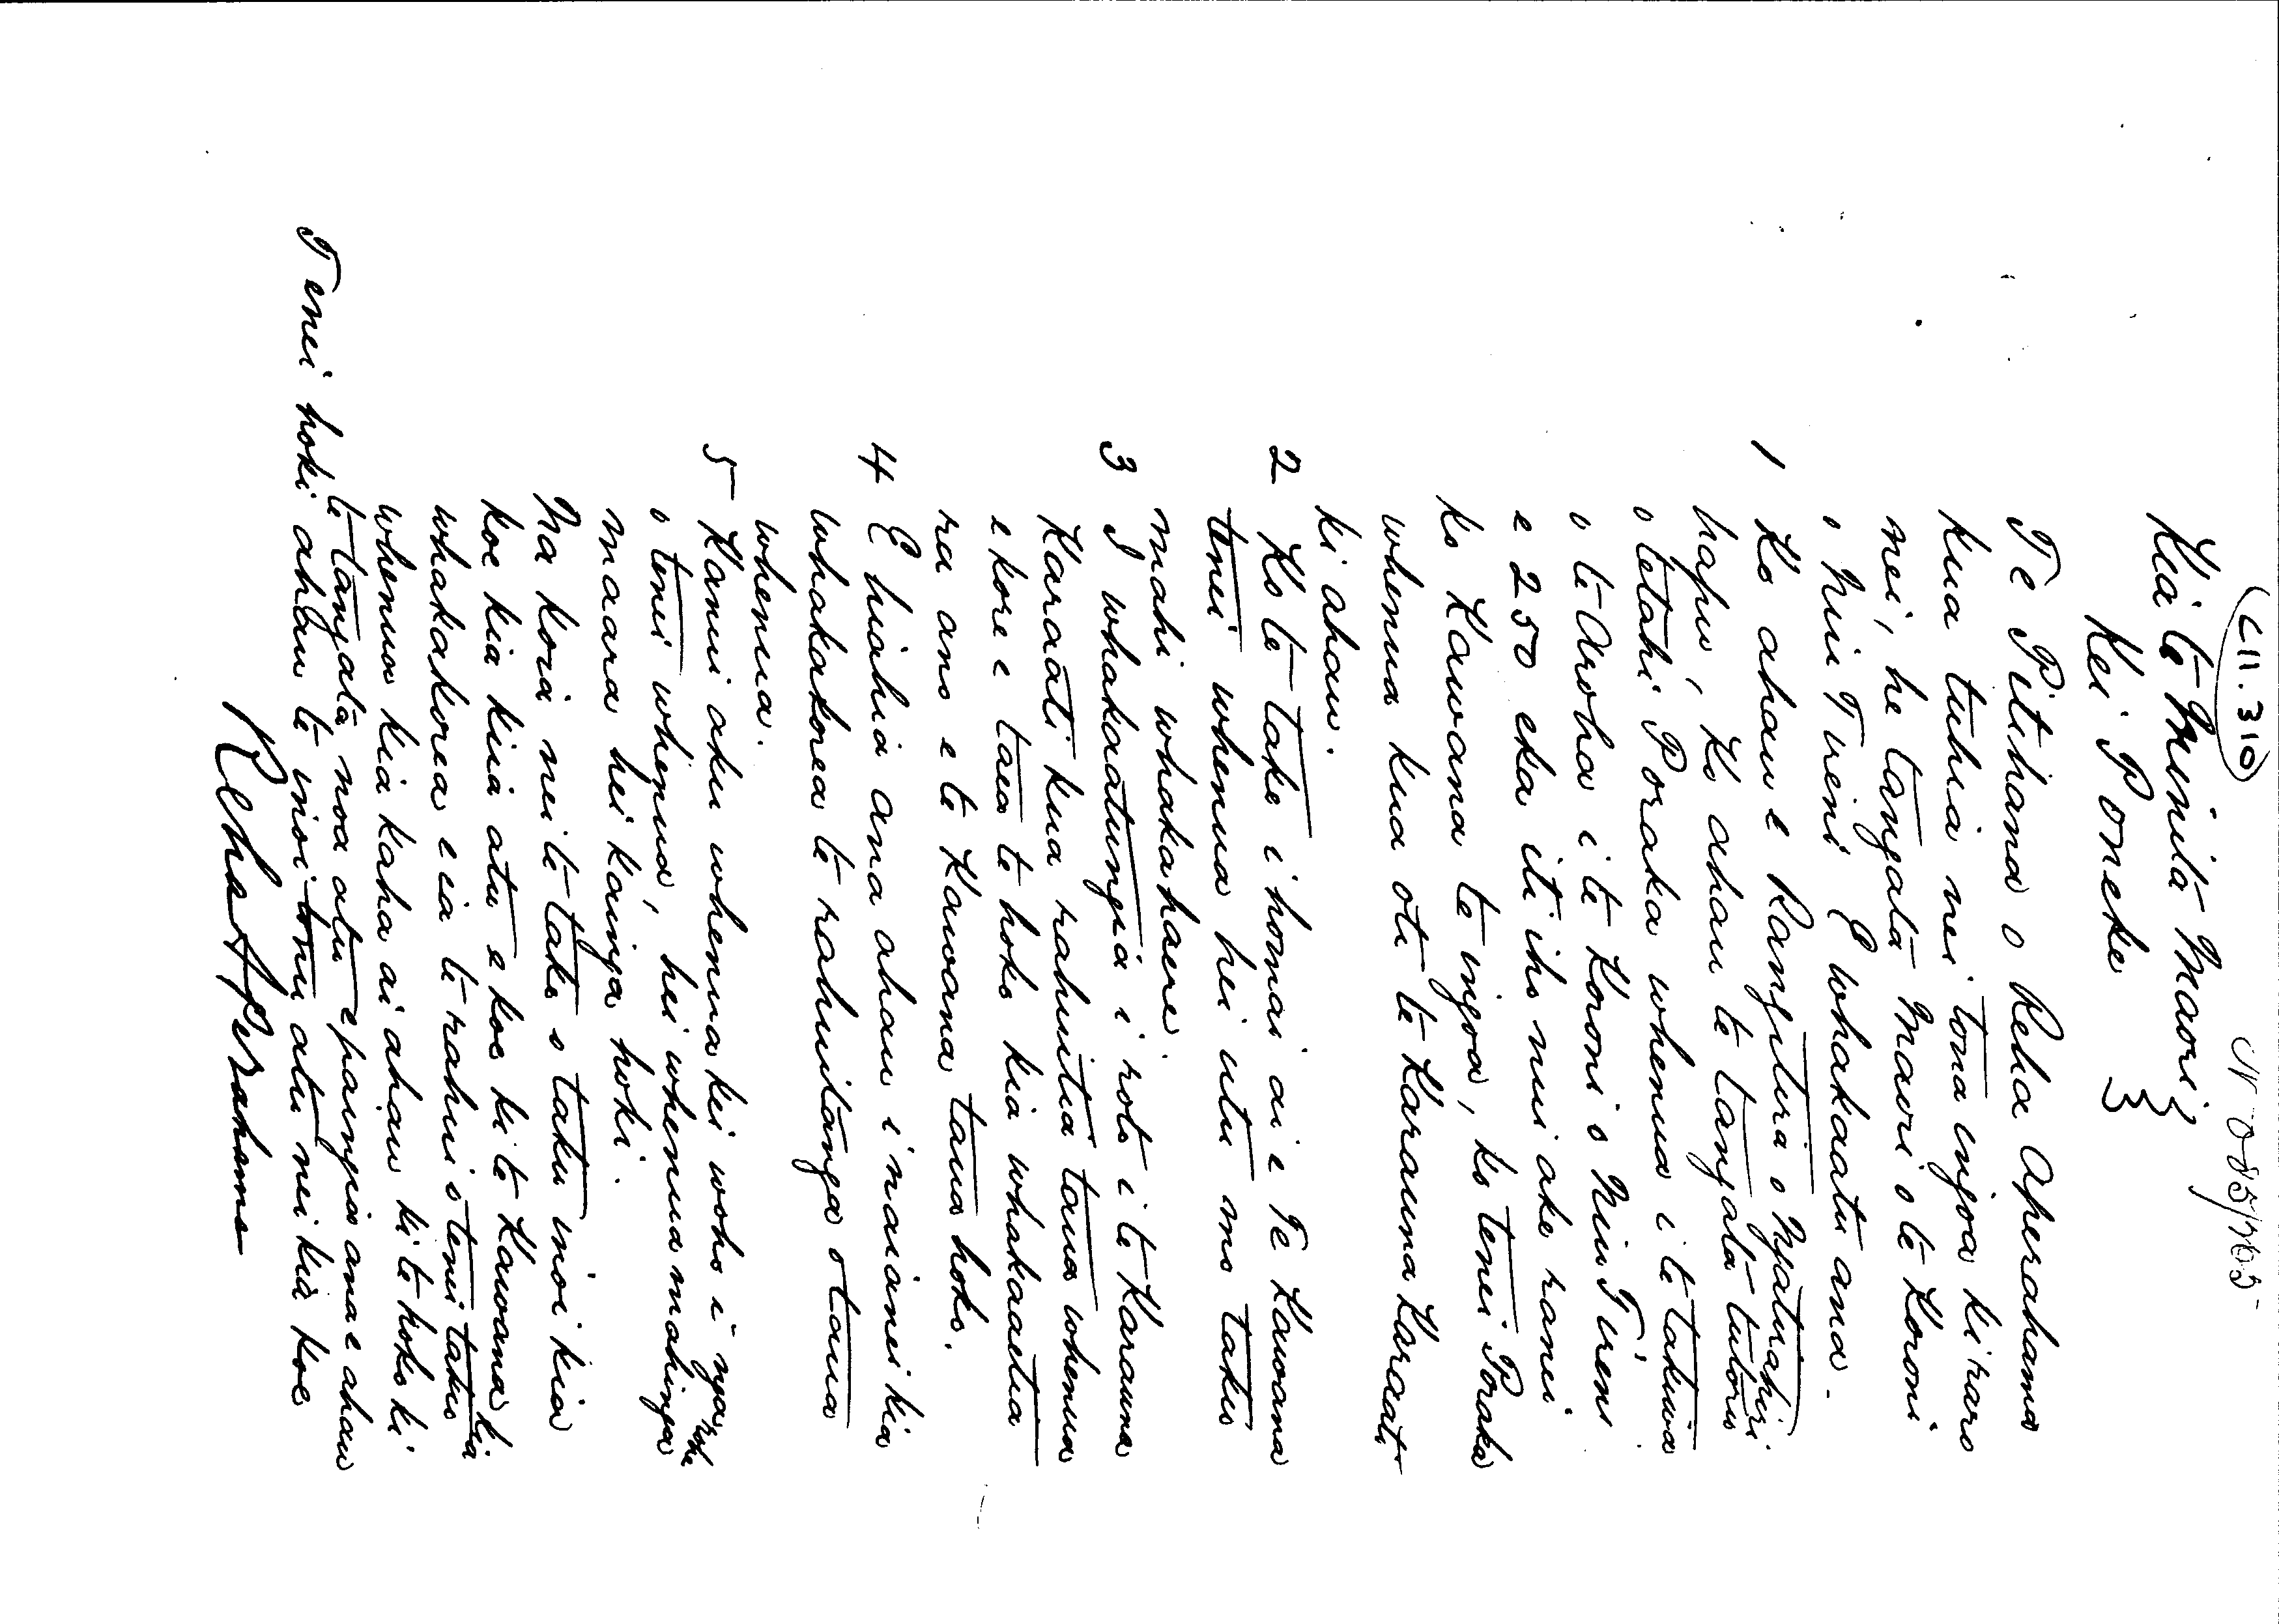 C11.310
N 05/765
Kia te Minita Maori }
Kei Poneke }
Te Pitihana o Reha Aperahama
kua tuhia nei tona ingoa ki raro
nei, he tangata Maori o te Koroni
o Niu Tireni E whakaatu ana.
1 Ko ahau e Rangitira o Ngatuahiri
hapu, Ko ahau te tangata tuturu
o tetahi Poraka whenua i te takiwa
o te Aroha i te Koroni o Niu Tireni
e 250 eka iti iho nui ake ranei
ko Kawana te ingoa, ko tenei Poraka
whenua kua oti te Karauna Karaati
ki ahau.
2 Ko te take i homai ai e Te Kawana
tenei whenua hei utu mo taku
mahi whakahaere.
3 I whakaaturgia i roto i te Karauna
Karaati kua rahuitia taua whenua
e kore e taea te hoko kia whakaaetia
ra ano e te Kawana taua hoko.
4 E hiahia ana ahau i naianei kia
whakakorea te rahuitanga o taua
whenua.
5 Kanui aku whenua kei waho i nga rohe
o tenei whenua, hei whenua mahinga
maara hei kainga hoki.
Na koia nei te take o taku inoi kia
koe kia kiia atu e koe ki te Kawana kia
whakakorea e ia te rahui o tenei taku
whenua kia kaha ai ahau ki te hoko ki
te tangata noa atu e pangia ana e ahau
Tenei hoki ahau te inoi tonu atu nei kia koe
Reha Aperahama